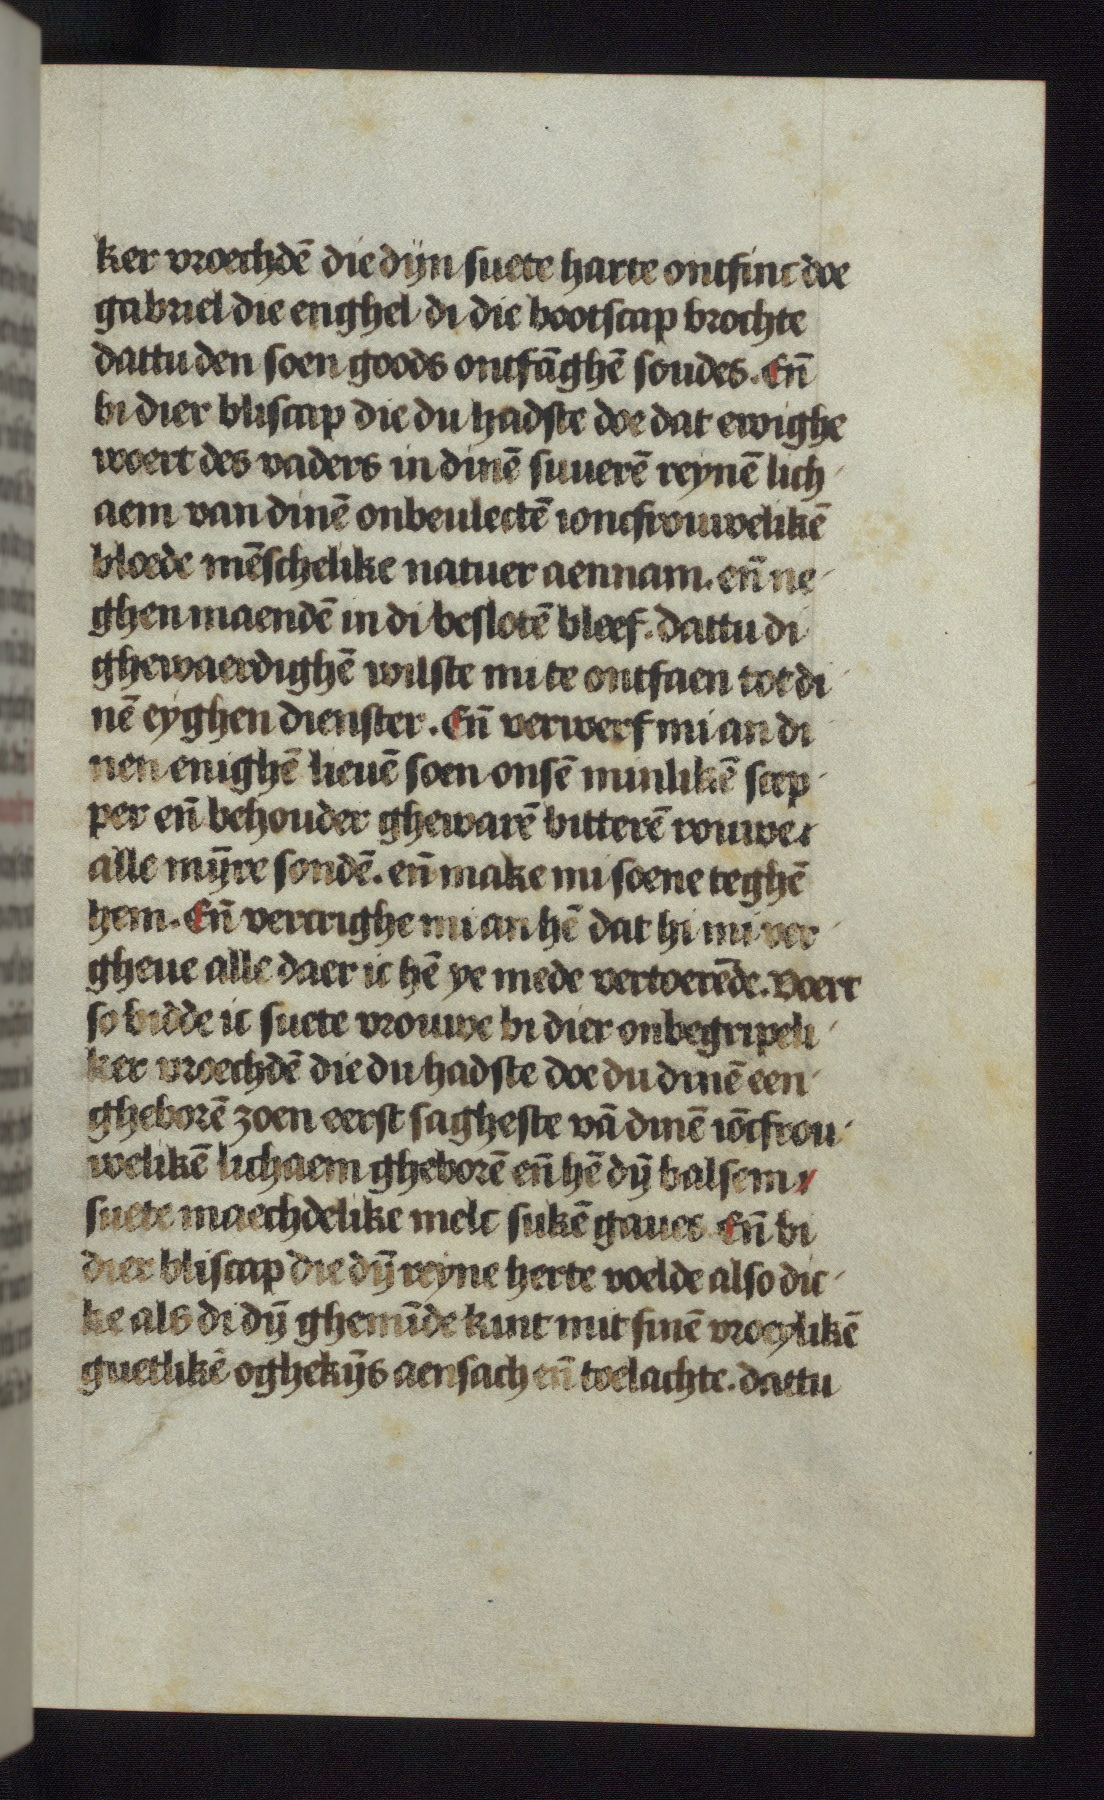 ker vroechdē die dyn suete harte ontfinc doe
gabriel die enghel di die bootscap brochte
dattu den soen goods ontfāghē soudes. Eñ
bi dier bliscap die du hadste doe dat ewighe
woert des vaders in dinē suuerē reynē lich
aem van dinē onbeulectē ioncfrouwelikē
bloede mēschelike natuer aennam. eñ ne
ghen maendē in di beslotē bleef. dattu di
ghewaerdighē wilste mi te ontfaen tot di
nē eyghen dienster. Eñ verwerf mi an di
nen enighē lieuē soen onsē minlikē scep
per eñ behouder ghewarē bitterē rouwe
alle mȳre sondē. eñ make mi soene teghē
hem. Eñ vercrighe mi an hē dat hi mi ver
gheue alle daer ic hē ye mede vertoerēde. Voert
so bidde ic suete vrouwe bi dier onbegripeli
ker vroechdē die du hadste doe du dinē een
gheborē zoen eerst sagheste vā dinē iōcfrou
welikē lichaem gheborē eñ hē dȳ balsem
suete maechdelike melc sukē gaues. Eñ bi
dier bliscap die dȳ reyne herte voelde also dic
ke als di dȳ ghemīde kint mit sinē vroeylikē
guetlikē oghekȳs aensach eñ toelachte. dattu